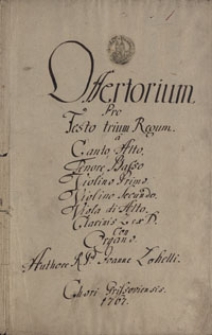 Offertorium.
Pro
Festo trium Regum.
a
Canto, Alto,
Tenore, Basso
Violino Primo.
Violino Secundo.
Viola di Alto.
Clarinis 2 ex D.
Con
Organo.
Authore R. D. Joanne Lohelli.
Chori
1767.